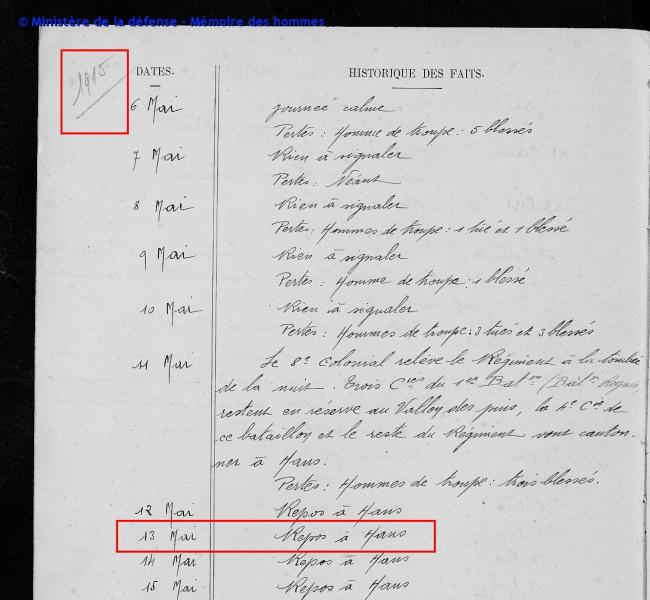 © Ministère de la défense - Mémoire des hommes
1915
DATES. HISTORIQUE DES FAITS.
6 Mai journeé calme
Pertes: Homme de troupe: 5 blessés
7 Mai Rien à signaler
Pertes: Néant
8 Mai Rien à signaler
Pertes: Hommes de troupe: 1 tué et 1 blessé
9 Mai Rien à signaler
Pertes: Homme de troupe: 1 blessé
10 Mai Rien à signaler
Pertes: Hommes de troupe: 3 tués et 3 blessés
11 Mai Le 8e Colonial relève le Régiment à la tombée
de la nuit. Trois Cies du 1er Baton (Baton
restent en réserve au Vallon des pins, la 4e Cie de
ce bataillon et le reste du Régiment vont canton-
ner à Hans.
Pertes: Hommes de troupe: trois blessés.
12 Mai Repos à Hans
13 Mai Repos à Hans
14 Mai Repos à Hans
15 Mai Repos à Hans